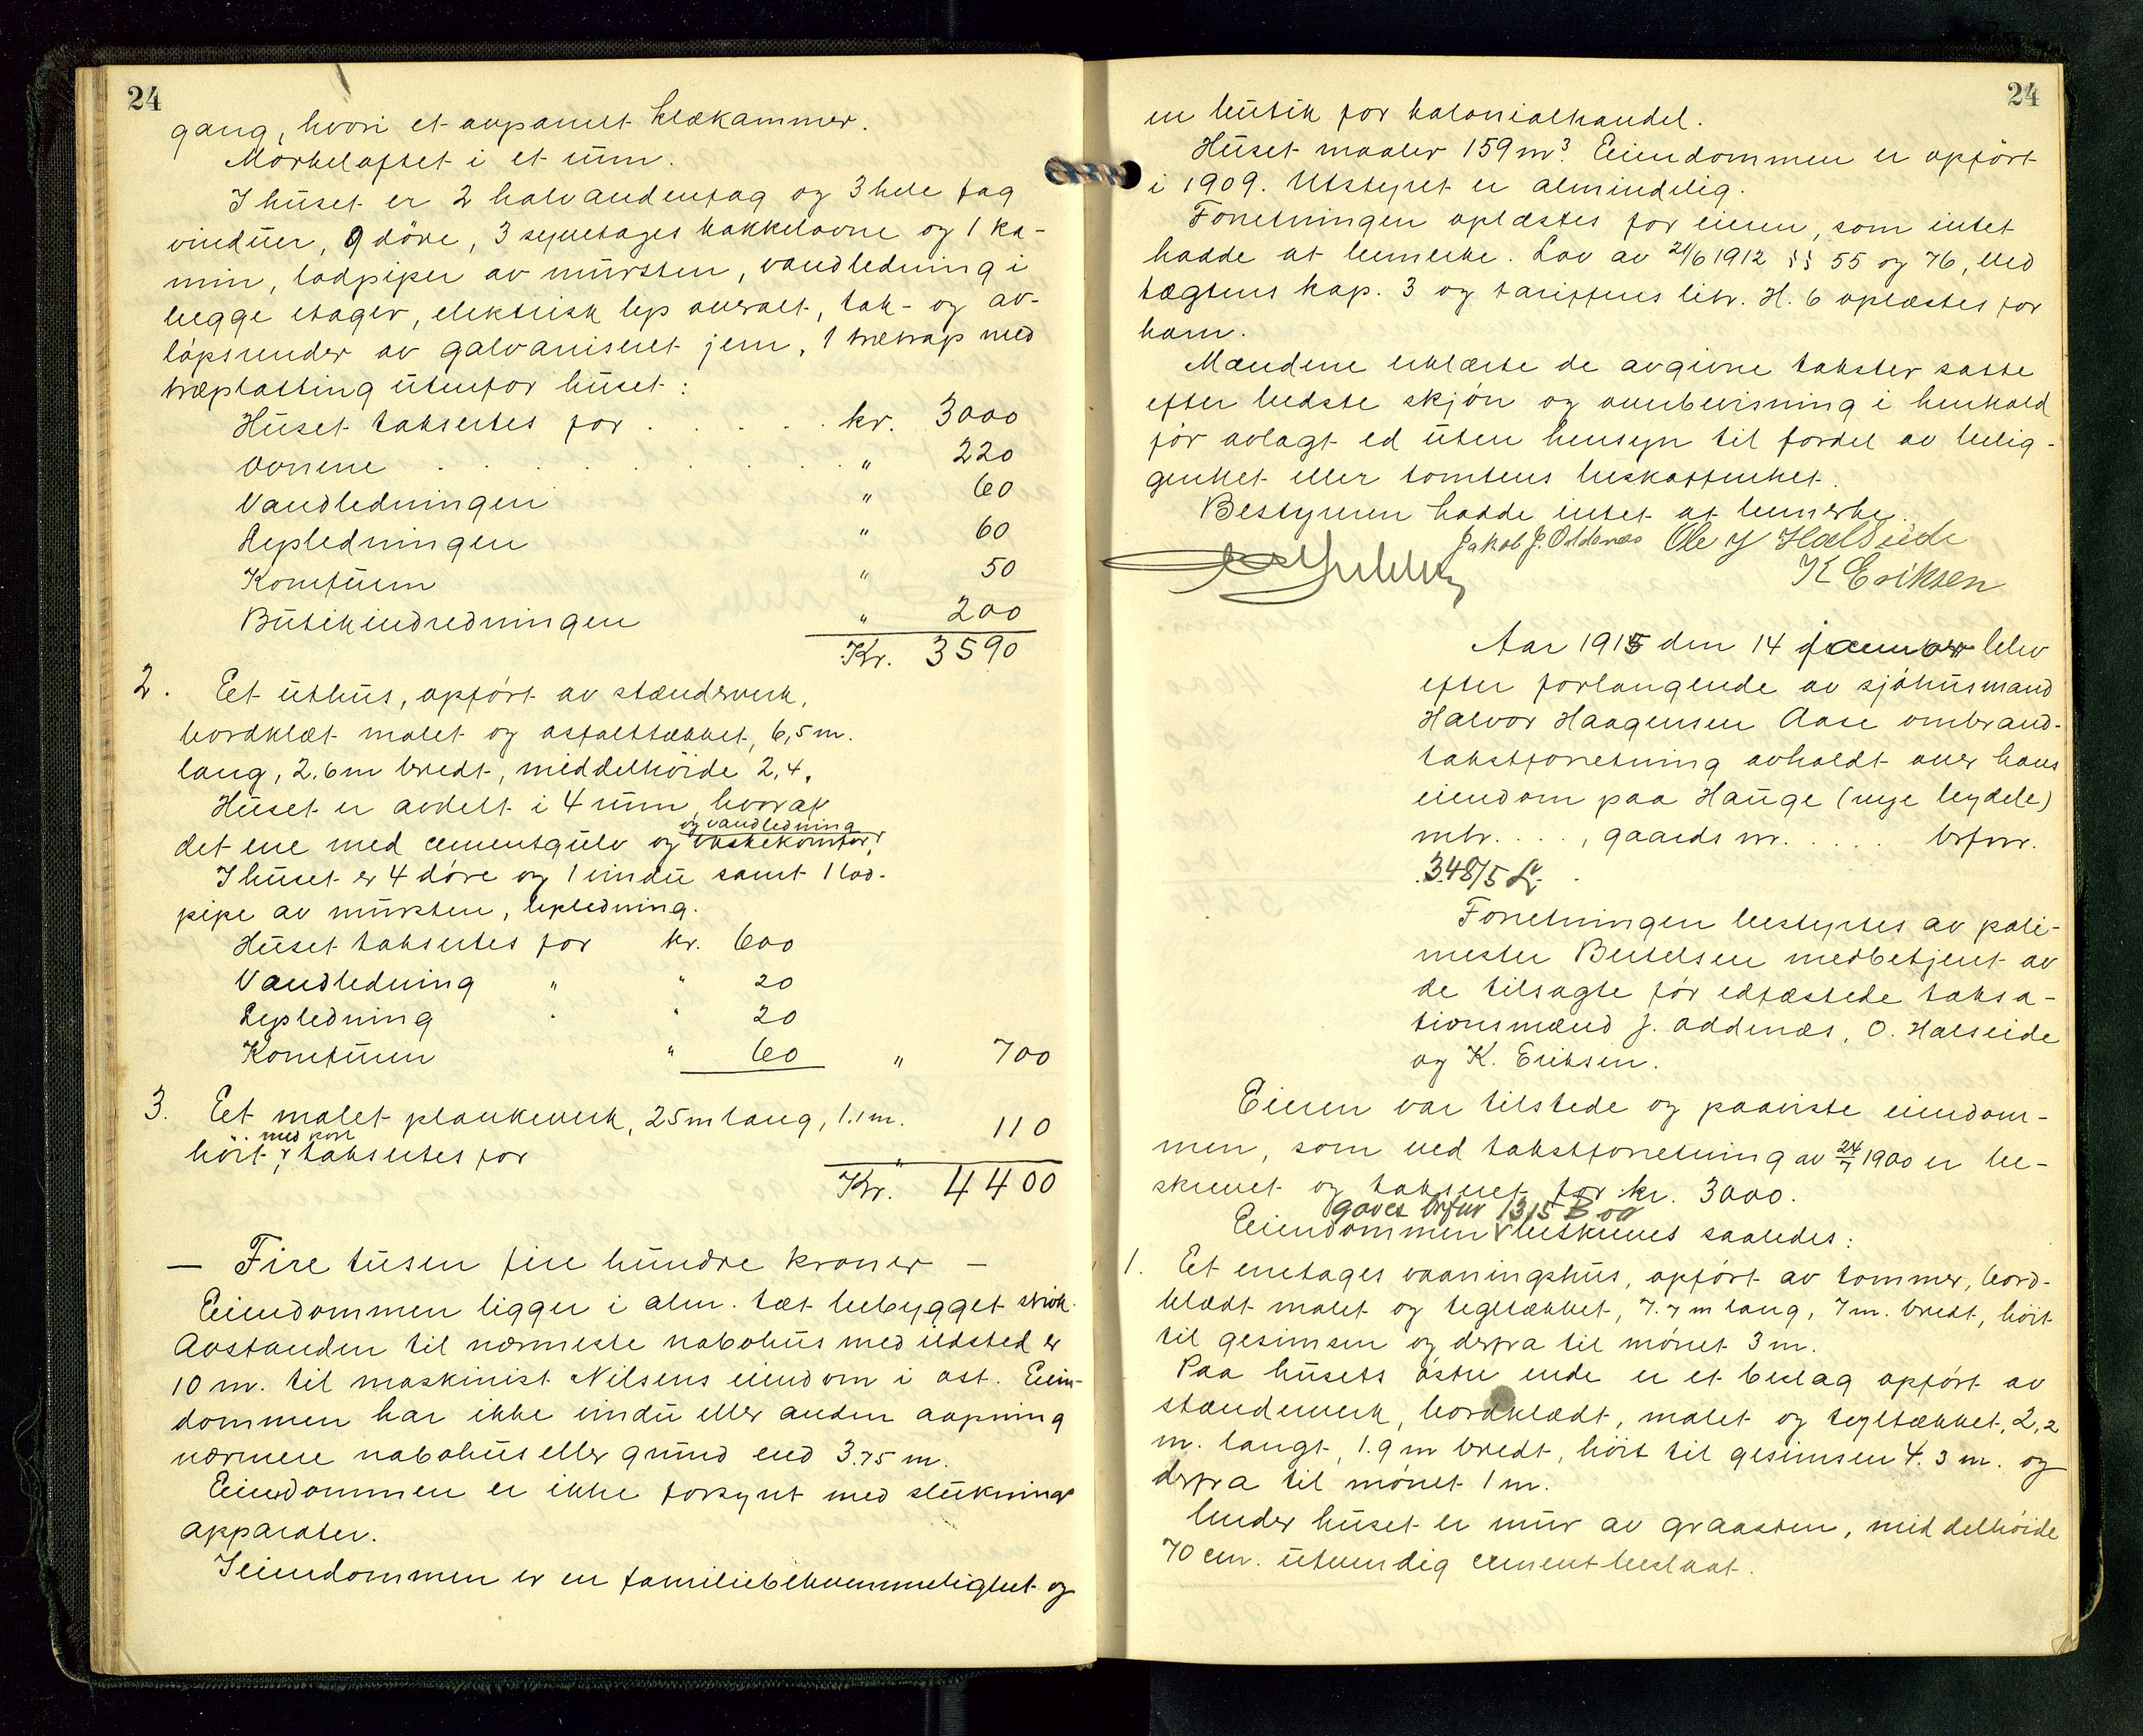 24
gang, hvori et avpanelt klækammer.
Mørkeloftet i et rum.
I huset er 2 halvandenfag og 3 hele fag
vinduer, 9 døre, 3 seget​ages kakkelovne og 1 ka-
min, lodpiper av mursten, vandledning i
begge etager, elektrisk lys overalt, tak- og av-
løpsrender av galvaniseret jern, 1 trætrap med
træplatting utenfor huset:
Huset takseres for . . . . . kr. 3000
Ovnene . . . . . . . . . . " 220
Vandledningen " 60
Lysledningen " 60
Komfuren " 50
Butikindredningen " 200
Kr. 3590
2. Eet uthus, opført av stænderverk,
bordklæt malet og asfalttækket, 6,5 m.
lang, 2.6 m bredt, middelhøide 2,4.
Huset er avdelt i 4 rum, hvoraf
og vandledning
det ene med cementgulv og vaskekomfur.
I huset er 4 døre og 1 vindu samt 1 lod-
pipe av mursten, lysledning.
Huset takseres for kr. 600
Vandledning " " 20
Lysledning " " 20
Komfuren " 60 " 700
3. Eet malet plankeverk, 25 m lang, 1.1 m. 110
med port
høit, takseres for "
Kr. 4400
— Fire tusen fire hundre kroner —
Eiendommen ligger i alm. tæt bebygget strøk.
Avstanden til nærmeste nabohus med ildsted er
10 m. til maskinist Nilsens eiendom i øst. Eien-
dommen har ikke vindu eller anden aapning
nærmere nabohus eller grund end 3.75 m.
Eiendommen er ikke forsynt med sluknings
apparater.
I eiendommen er en familiebekvemmelighet og
24
en butik for kolonialhandel.
Huset maaler 159 m³. Eiendommen er opført
i 1909. Utstyret er almindelig.
Forretningen oplæstes for eieren, som intet
hadde at bemerke. Lov av 21/6 1912 §§ 55 og 76, ved
tægtens kap. 3 og tariffens litr. H. 6 oplæstes for
ham.
Mændene erklærte de avgivne takster satte
efter bedste skjøn og overbevisning i henhold
før avlagt ed uten hensyn til fordel av belig-
genhet eller tomtens beskaffenhet.
Bestyreren hadde intet at bemerke.
Jakob J. Oddenæs Ole J Halseide
K Eriksen
Aar 1915 den 14 januar blev
efter forlangende av sjøhusmand
Halvor Haagensen Aase ombrand-
takstforretning avholdt over hans
eiendom paa Hauge (nye bydele)
mtr. . . . , gaards nr. . . . . brfnr.
348/5 L.
Forretningen bestyrtes av poli-
mester Bertelsen medbetjent av
de tilsagte før edfæstede taksa-
tionsmænd J. Oddenæs, O. Halseide
og K. Eriksen.
Eieren var tilstede og paaviste eiendom-
men, som ved takstforretning av 24/7 1900 er be-
skrevet og takseret for kr. 3000.
gaves brfnr 1315 B og
Eiendommen beskrives saaledes:
1. Et enetages vaaningshus, opført av tømmer, bord-
klædt malet og tegltækket, 7.7 m lang, 7 m. bredt, høit
til gesimsen og derfra til mønet 3 m.
Paa husets østre ende er et beslag opført av
stænderverk, bordklædt, malet og tegltækket, 2,2
m. langt, 1.9 m bredt, høit til gesimsen 4.3 m. og
derfra til mønet 1 m.
Under huset er mur av graasten, middelhøide
70 cm. utvendig cementbeslaat.